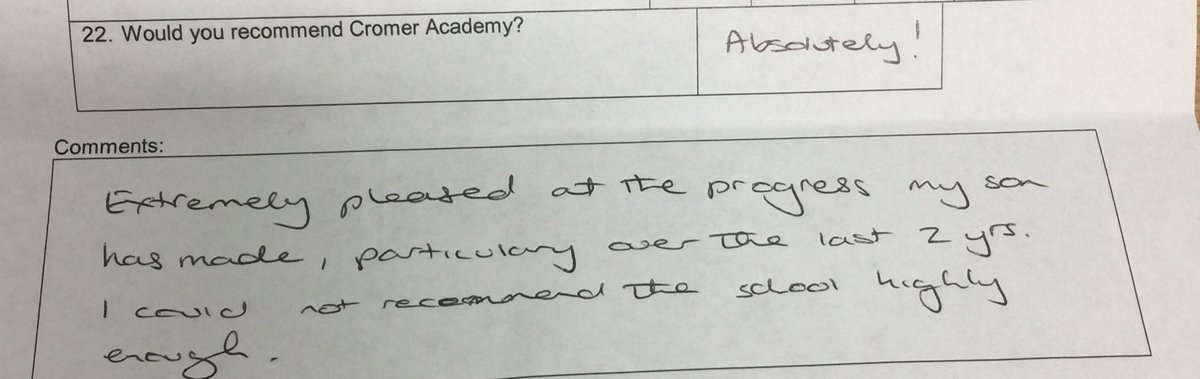 22. Would you recommend Cromer Academy?
Absolutely!
Comments:
Extremely pleased at the progress my son
has made, particulary over the last 2 yrs.
I could not recommend the school highly
enough.